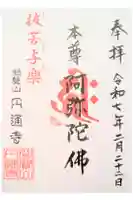 奉拝
令和七年二月二十二日
本尊
阿弥陀佛
抜苦与楽
山
円通寺